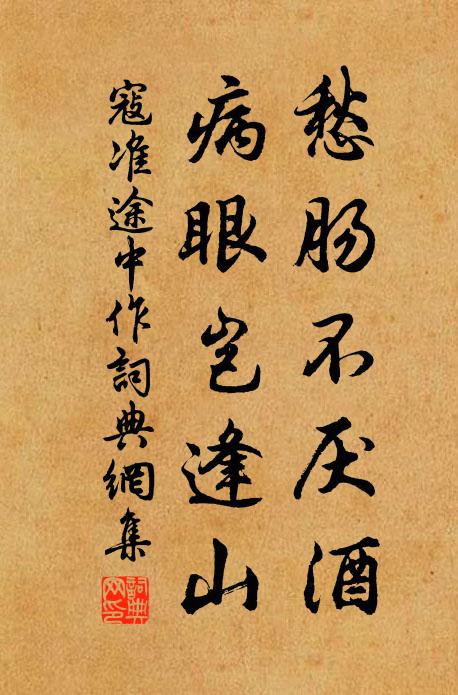 愁肠不厌酒
病眼岂逢山
寇准途中作詞典網集
詞典網印